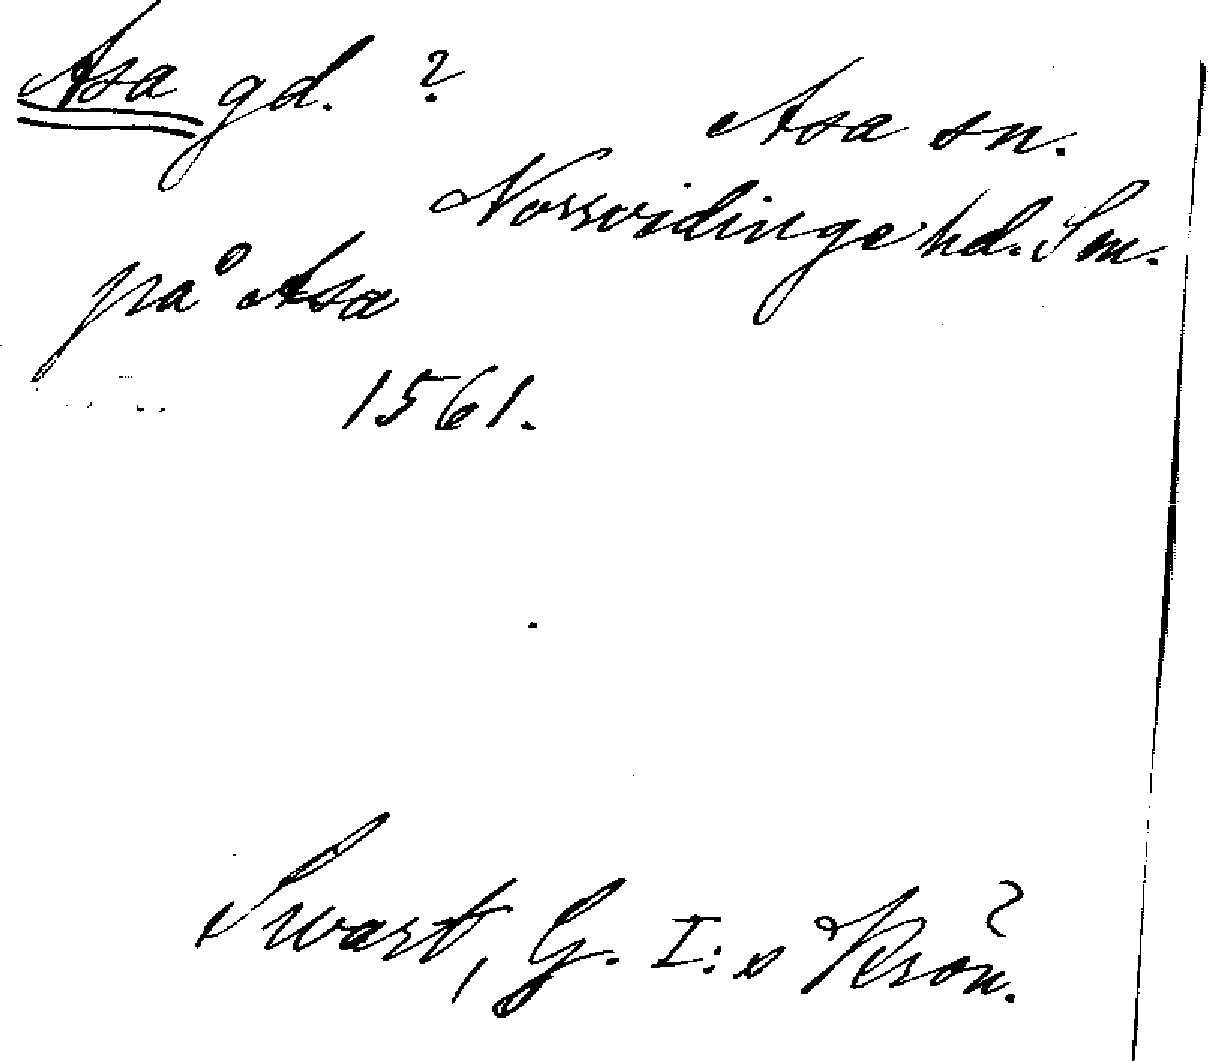 Asa gd. ?
Asa sn.
Norrvidinge hd. Sm.
på Asa
1561.
Swart, G. I:s Krön.